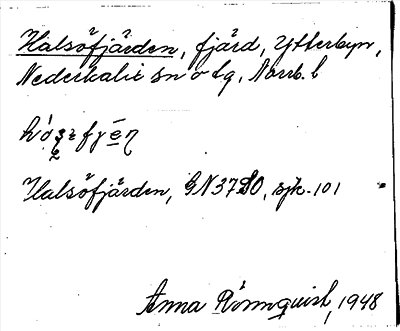 Halsöfjärden, fjärd, Ytterbyn,
Nederkalix sn o tg, Norrb. l
Halsöfjärden, GN3780, sjk. 101
Anna Rönnquist, 1948